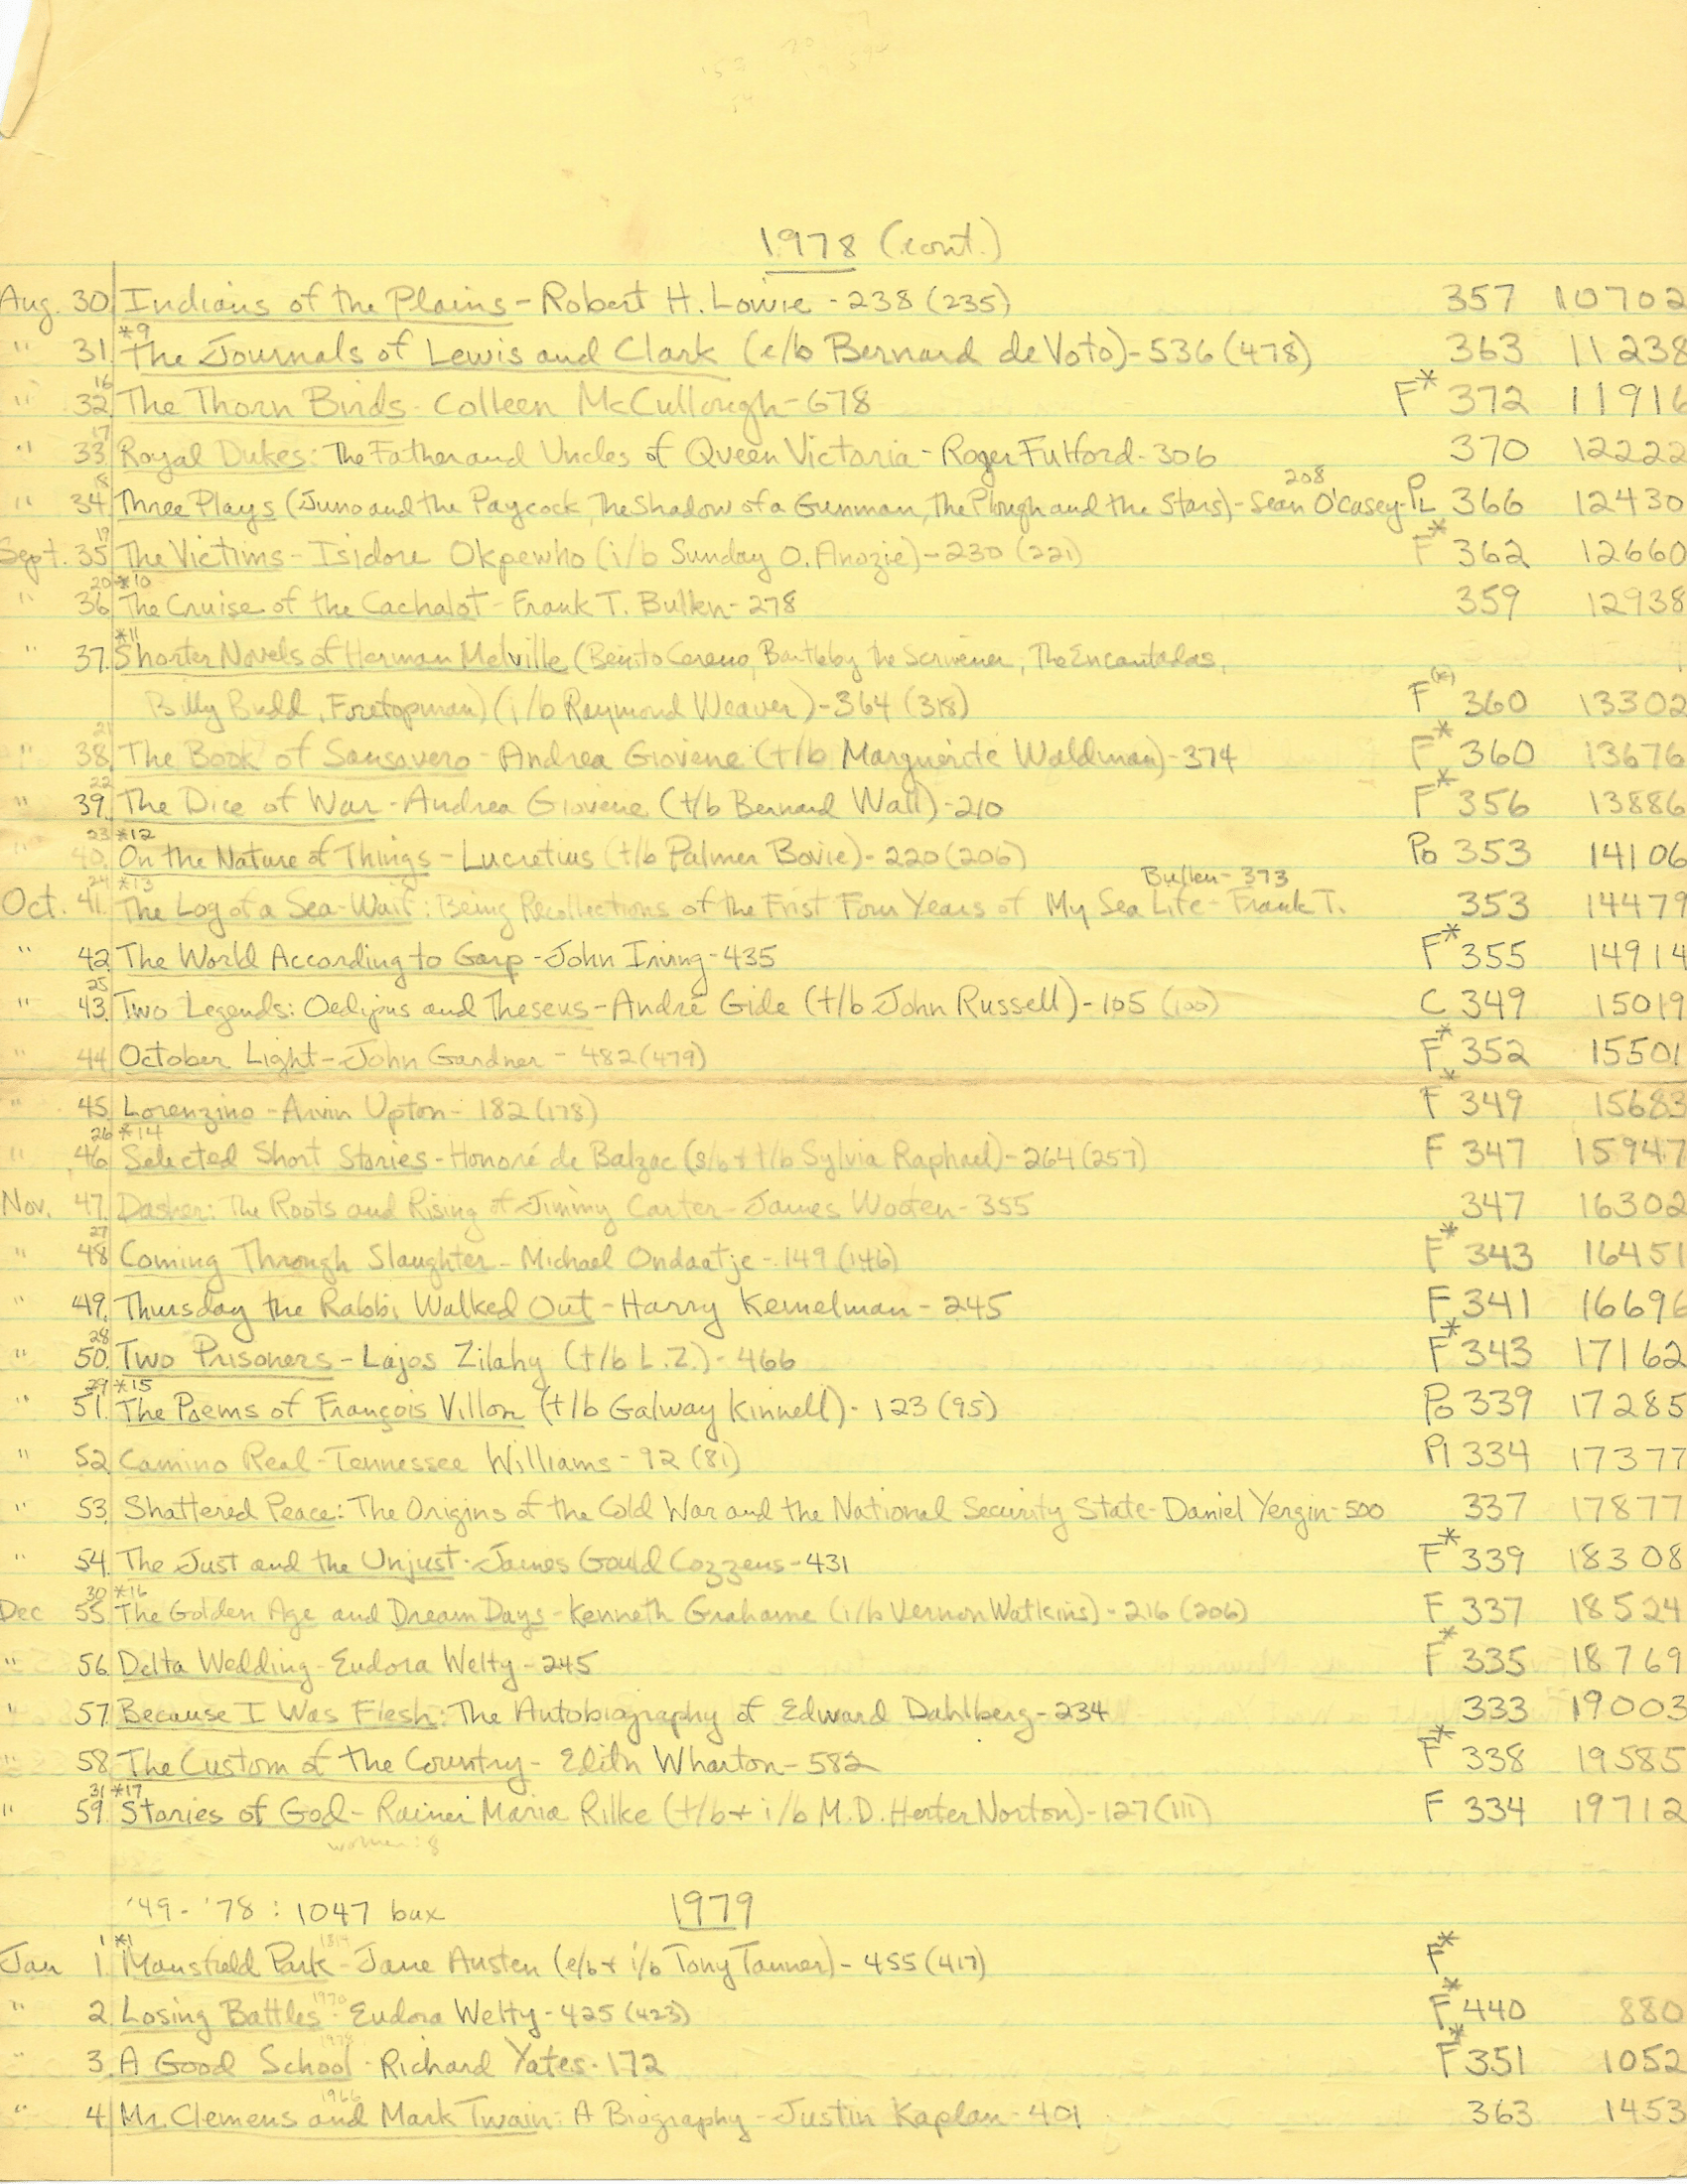 1978 (cont.)
Aug. 30. Indians of the Plains - Robert H. Lowie - 238 (235) 357 10702
*9
" 31. The Journals of Lewis and Clark (e/b Bernard de Voto) - 536 (478) 363 11238
16
" 32. The Thorn Birds - Colleen McCullough - 678 F* 372 11916
17
" 33. Royal Dukes: The Father and Uncles of Queen Victoria - Roger Fulford - 306 370 12222
208
" 34. Three Plays (Juno and the Paycock, The Shadow of a Gunman, The Plough and the Stars) - Sean O'Casey - PL 366 12430
19
Sept. 35. The Victims - Isidore Okpewho (i/b Sunday O. Anozie) - 230 (221) F* 362 12660
20 *10
" 36. The Cruise of the Cachalot - Frank T. Bullen - 278 359 12938
*11
" 37. Shorter Novels of Herman Melville (Benito Cereno, Bartleby the Scrivener, The Encantadas,
Billy Budd, Foretopman) (i/b Raymond Weaver) - 364 (318) F(*) 360 13302
21
" 38. The Book of Sansevero - Andrea Giovene (t/b Marguerite Waldman) - 374 F* 360 13676
22
" 39. The Dice of War - Andrea Giovene (t/b Bernard Wall) - 210 F* 356 13886
23 *12
" 40. On the Nature of Things - Lucretius (t/b Palmer Bovie) - 220 (206) Po 353 14106
24 *13 Bullen - 373
Oct. 41. The Log of a Sea-Waif: Being Recollections of the Frist Four Years of My Sea Life - Frank T. 353 14479
" 42. The World According to Garp - John Irving - 435 F* 355 14914
25
" 43. Two Legends: Oedipus and Theseus - André Gide (t/b John Russell) - 105 (100) C 349 15019
" 44. October Light - John Gardner - 482 (479) F* 352 15501
" 45. Lorenzino - Arvin Upton - 182 (178) F* 349 15683
26 *14
" 46. Selected Short Stories - Honoré de Balzac (s/b + t/b Sylvia Raphael) - 264 (257) F 347 15947
Nov. 47. Dasher: The Roots and Rising of Jimmy Carter - James Wooten - 355 347 16302
27
" 48. Coming Through Slaughter - Michael Ondaatje - 149 (146) F* 343 16451
" 49. Thursday the Rabbi Walked Out - Harry Kemelman - 245 F 341 16696
28
" 50. Two Prisoners - Lajos Zilahy (t/b L.Z.) - 466 F* 343 17162
29 *15
" 51. The Poems of François Villon (t/b Galway Kinnell) - 123 (95) Po 339 17285
" 52. Camino Real - Tennessee Williams - 92 (81) Pl 334 17377
" 53. Shattered Peace: The Origins of the Cold War and the National Security State - Daniel Yergin - 500 337 17877
" 54. The Just and the Unjust - James Gould Cozzens - 431 F* 339 18308
30 *16
Dec 55. The Golden Age and Dream Days - Kenneth Grahame (i/b Vernon Watkins) - 216 (206) F 337 18524
" 56. Delta Wedding - Eudora Welty - 245 F* 335 18769
" 57. Because I Was Flesh: The Autobiography of Edward Dahlberg - 234 333 19003
" 58. The Custom of the Country - Edith Wharton - 582 F* 338 19585
31 *17
" 59. Stories of God - Rainer Maria Rilke (t/b + i/b M.D. Herter Norton) - 127 (111) F 334 19712
women: 8
'49 - '78 : 1047 bux 1979
1 *1 1814
Jan 1. Mansfield Park - Jane Austen (e/b + i/b Tony Tanner) - 455 (417) F*
1970
" 2. Losing Battles - Eudora Welty - 425 (423) F* 440 880
1978
" 3. A Good School - Richard Yates - 172 F* 351 1052
1966
" 4. Mr. Clemens and Mark Twain: A Biography - Justin Kaplan - 401 363 1453